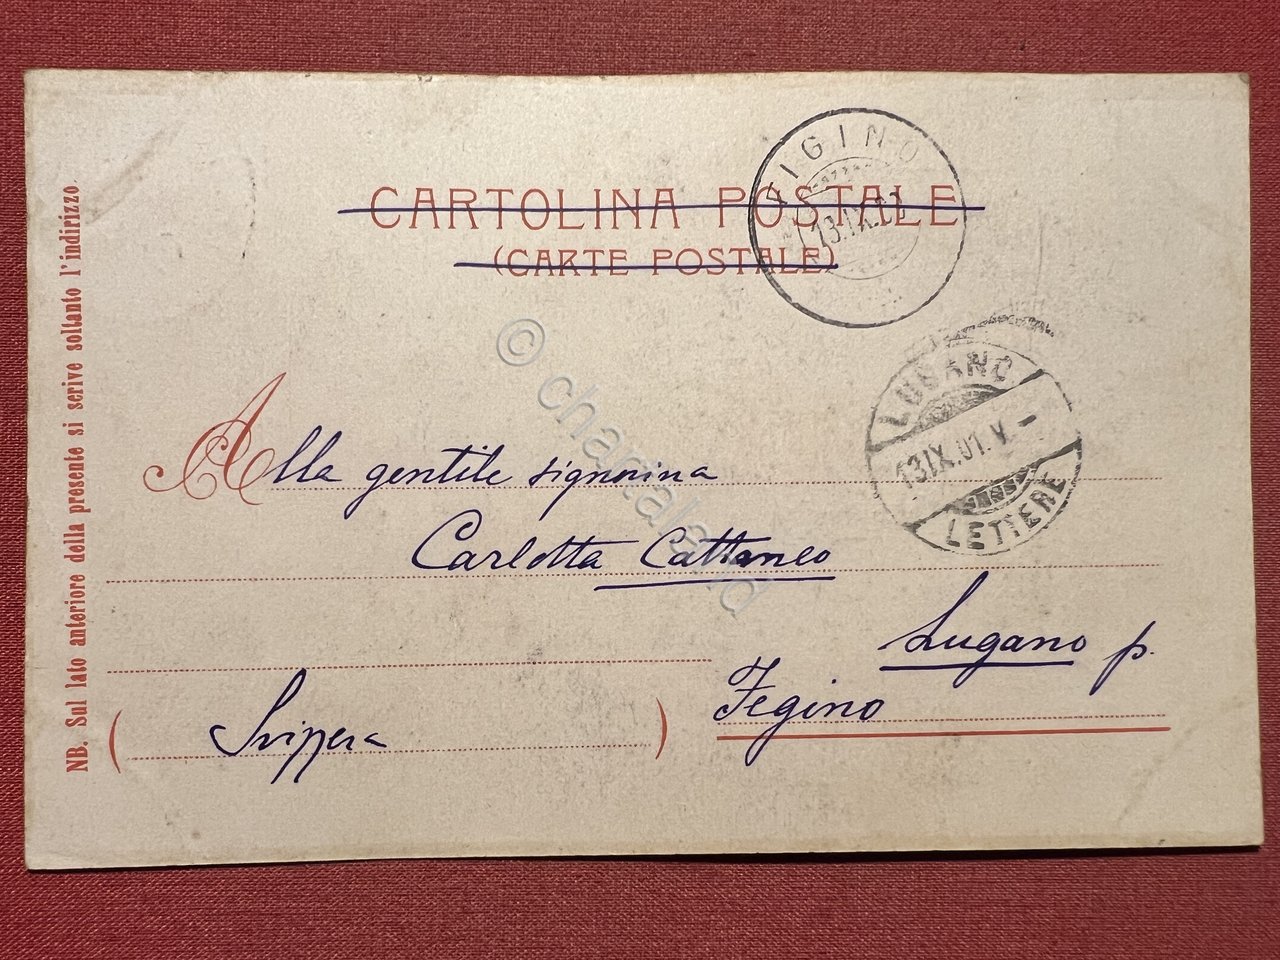 CARTOLINA POSTALE
(CARTE POSTALE)
FIGINO
13.IX.01
LUGANO
13.IX.01.V.-
LETTERE
NB. Sul lato anteriore della presente si scrive soltanto l'indirizzo
Alla gentile signorina
Carlotta Cattaneo
Lugano p.
Fegino
(Svizzera)
© chartaland